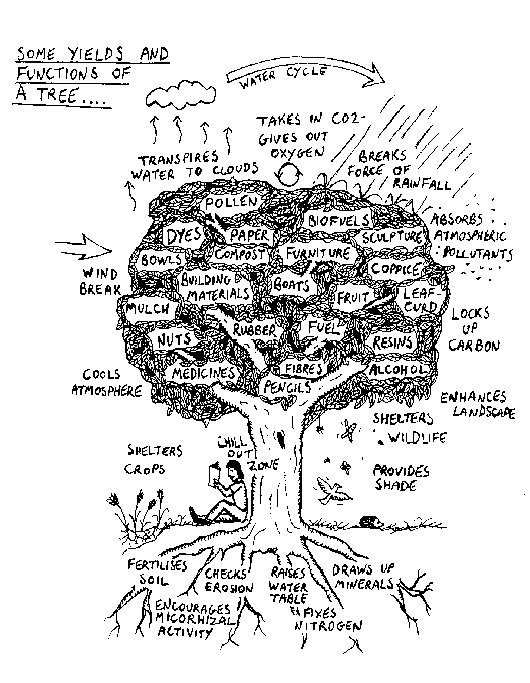 SOME YIELDS AND
FUNCTIONS OF
A TREE....
WATER CYCLE
TAKES IN CO2-
GIVES OUT
OXYGEN
TRANSPIRES
WATER TO CLOUDS
BREAKS
FORCE OF
RAINFALL
POLLEN
BIOFUELS
DYES
PAPER
SCULPTURE
ABSORBS
ATMOSPHERIC
POLLUTANTS
BOWLS
COMPOST
FURNITURE
COPPICE
WIND
BREAK
BUILDING
MATERIALS
BOATS
FRUIT
LEAF-
CURD
MULCH
RUBBER
FUEL
LOCKS
UP
CARBON
NUTS
RESINS
MEDICINES
FIBRES
ALCOHOL
PENCILS
COOLS
ATMOSPHERE
ENHANCES
LANDSCAPE
SHELTERS
WILDLIFE
CHILL
OUT
ZONE
SHELTERS
CROPS
PROVIDES
SHADE
FERTILISES
SOIL
CHECKS
EROSION
RAISES
WATER
TABLE
DRAWS UP
MINERALS
ENCOURAGES
MICORHIZAL
ACTIVITY
& FIXES
NITROGEN